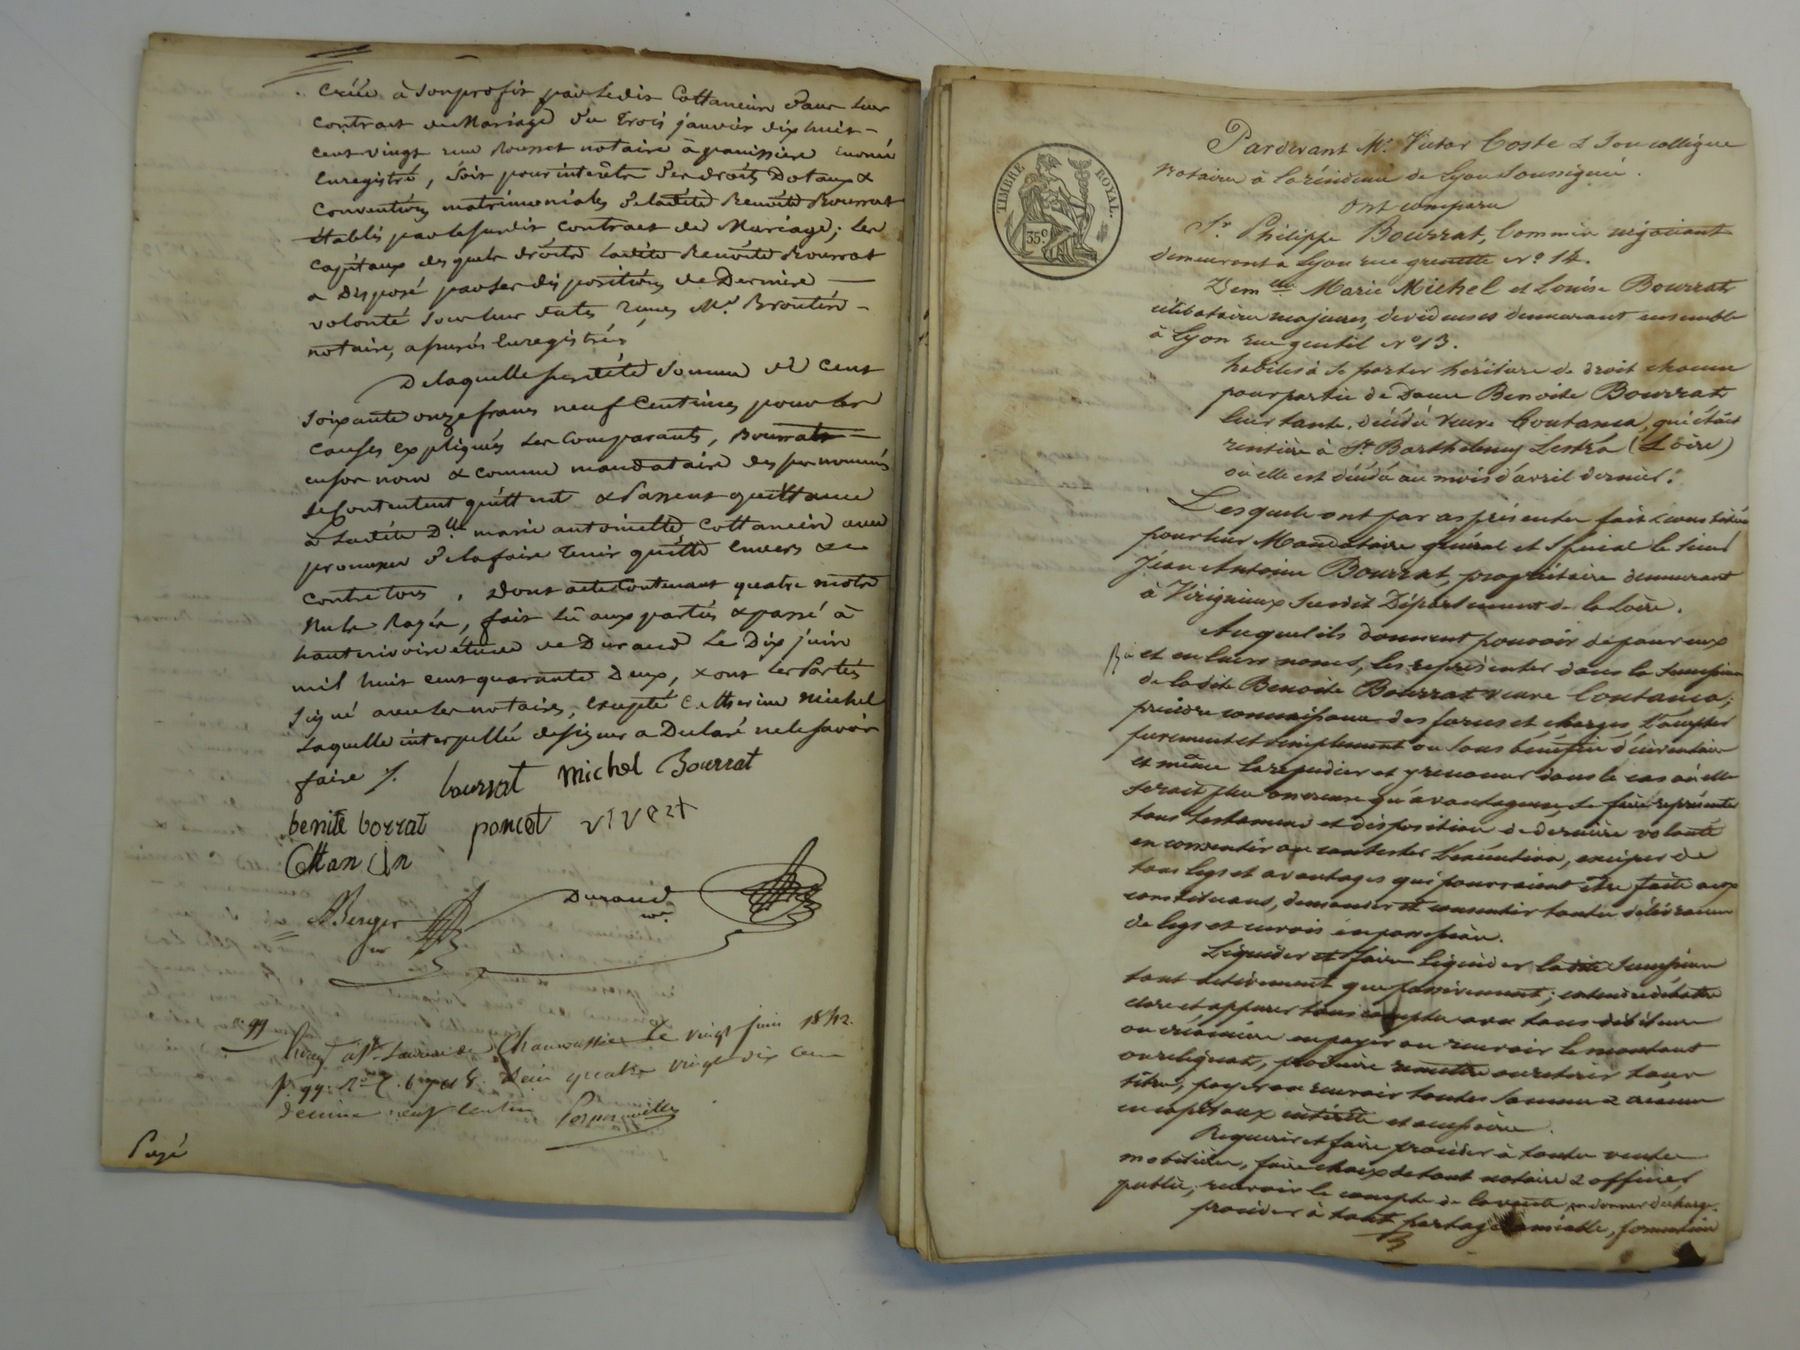 créée à son profit par ledit Cottancin dans leur
contract de Mariage du trois janvier dix huit
cent vingt un Rousset notaire à panissière
Enregistré, soit pour intérêts des droits Dotaux &
conventions matrimoniales de ladite Benoite Bourrat
établis par le susdit contract de Mariage; les
capitaux des quels droits ladite Benoite Bourrat
a Disposé par ses dispositions de Dernière
volonté sous leur date reçues Me. Broutin
notaire, assurés Enregistrés
De laquelle susdite somme de cent
soixante onze francs neuf centimes pour les
causes expliquées les comparants, Bourrat
en son nom & comme mandataire des prénommés
se contentent quittent & Passent quittance
à ladite Dlle. marie antoinette Cottancin avec
promesse de la faire tenir quitte envers &
contre tous. Dont acte contenant quatre mots
nuls Rayés, fait lû aux parties & passé à
hauterivoire étude de Durand Le Dix juin
mil huit cent quarante Deux, & ont les Parties
signé avec les notaires, excepté Catherine Michel
Laquelle interpellée de signer a Déclaré ne le savoir
faire %. bourrat Michel Bourrat
benite borrat poncet vivert
Cttancin
Berger Durand
nre
n° 99 Enregt. à St. Laurent de Chamousset Le vingt juin 1842.
fo. 99. Ro. C. 6, 7 et 8. Reçu quatre vingt dix cent
decime neuf centimes
Payé
TIMBRE ROYAL.
35c.
Pardevant Me. Victor Coste & son collègue
notaires à la résidence de Lyon soussignés.
ont comparu
Sr. Philippe Bourrat, Commis négociant
demeurant à Lyon rue grenette No 14.
Demlles Marie Michel et Louise Bourrat
célibataires majeures, dévideuses demeurant ensemble
à Lyon rue gentil No 13.
habiles à se porter héritiers de droit chacun
pour partie de Dame Benoite Bourrat
leur tante, décédée veuve Coutanca, qui était
rentière à St. Barthelemy Lestra (Loire)
où elle est décédée au mois d'avril dernier.
Lesquels ont par ces présentes fait & constitué
pour leur Mandataire général et spécial le sieur
Jean Antoine Bourrat, propriétaire demeurant
à Virigneux susdit Département de la Loire.
Auquel ils donnent pouvoir de pour eux
et en leurs noms, les représenter dans la succession
de la dite Benoite Bourrat veuve Coutanca;
prendre connaissance des forces et charges, l'accepter
purement et simplement ou sous bénéfice d'inventaire
et même la repudier et y renoncer dans le cas où elle
serait plus onereuse qu'avantageuse, se faire représenter
tous testaments et dispositions de dernière volonté
en consentir ou contester l'exécution, exciper de
tous legs et avantages qui pourraient être faits aux
constituans, demander et consentir toutes délivrances
de legs et envois en possession.
Liquider et faire liquider ladite succession
tant activement que passivement; entendre débattre
clore et appurer tous comptes avec tous débiteurs
ou créanciers en payer ou recevoir le montant
ou reliquat, produire remettre ou retirer tous
titres, payer ou recevoir toutes sommes
en capitaux intérêts et accessoires.
Requerir et faire procéder à toutes ventes
mobilières, faire choix de tout notaire & officier
public; recevoir le compte de la vente, en donner décharge.
procéder à tout partage amiable, formation